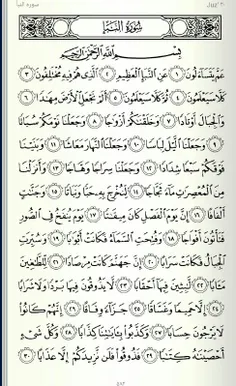 سورة النبأ
سُورَةُ النَّبَإِ
بِسْمِ اللَّهِ الرَّحْمَٰنِ الرَّحِيمِ
عَمَّ يَتَسَاءَلُونَ ١ عَنِ النَّبَإِ الْعَظِيمِ ٢ الَّذِي هُمْ فِيهِ مُخْتَلِفُونَ ٣
كَلَّا سَيَعْلَمُونَ ٤ ثُمَّ كَلَّا سَيَعْلَمُونَ ٥ أَلَمْ نَجْعَلِ الْأَرْضَ مِهَادًا ٦
وَالْجِبَالَ أَوْتَادًا ٧ وَخَلَقْنَاكُمْ أَزْوَاجًا ٨ وَجَعَلْنَا نَوْمَكُمْ سُبَاتًا
٩ وَجَعَلْنَا اللَّيْلَ لِبَاسًا ١٠ وَجَعَلْنَا النَّهَارَ مَعَاشًا ١١ وَبَنَيْنَا
فَوْقَكُمْ سَبْعًا شِدَادًا ١٢ وَجَعَلْنَا سِرَاجًا وَهَّاجًا ١٣ وَأَنْزَلْنَا
مِنَ الْمُعْصِرَاتِ مَاءً ثَجَّاجًا ١٤ لِنُخْرِجَ بِهِ حَبًّا وَنَبَاتًا ١٥ وَجَنَّاتٍ
أَلْفَافًا ١٦ إِنَّ يَوْمَ الْفَصْلِ كَانَ مِيقَاتًا ١٧ يَوْمَ يُنْفَخُ فِي الصُّورِ
فَتَأْتُونَ أَفْوَاجًا ١٨ وَفُتِحَتِ السَّمَاءُ فَكَانَتْ أَبْوَابًا ١٩ وَسُيِّرَتِ
الْجِبَالُ فَكَانَتْ سَرَابًا ٢٠ إِنَّ جَهَنَّمَ كَانَتْ مِرْصَادًا ٢١ لِلطَّاغِينَ
مَآبًا ٢٢ لَابِثِينَ فِيهَا أَحْقَابًا ٢٣ لَا يَذُوقُونَ فِيهَا بَرْدًا وَلَا شَرَابًا
٢٤ إِلَّا حَمِيمًا وَغَسَّاقًا ٢٥ جَزَاءً وِفَاقًا ٢٦ إِنَّهُمْ كَانُوا
لَا يَرْجُونَ حِسَابًا ٢٧ وَكَذَّبُوا بِآيَاتِنَا كِذَّابًا ٢٨ وَكُلَّ شَيْءٍ
أَحْصَيْنَاهُ كِتَابًا ٢٩ فَذُوقُوا فَلَنْ نَزِيدَكُمْ إِلَّا عَذَابًا ٣٠
٥٨٢